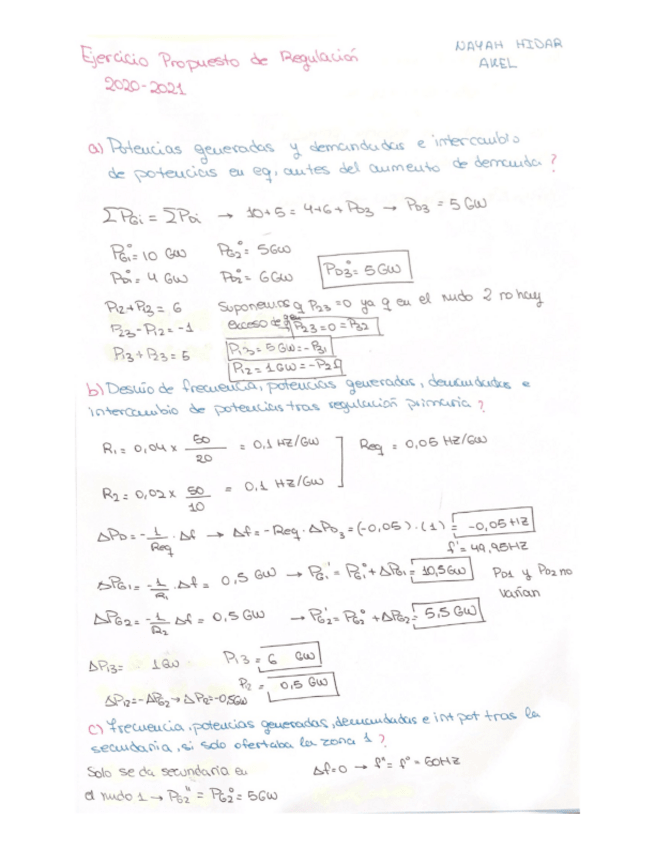 Ejercicio Propuesto de Regulación
2020-2021
NAYAH HIDAR
AKEL
a) Potencias generadas y demandadas e intercambio
de potencias en eq, antes del aumento de demanda?
ΣPGi = ΣPDi → 10+5 = 4+6+PD3 → PD3 = 5 GW
PG1° = 10 GW PG2° = 5GW
PD1° = 4 GW PD2° = 6GW PD3° = 5GW
P12+P13 = 6 Suponemos q P23=0 ya q en el nudo 2 no hay
P23-P12 = -1 exceso de P23=0=P32
P13+P23=5 P13=5GW=-P31
P12=1GW=-P21
b) Desvío de frecuencia, potencias generadas, demandadas e
intercambio de potencias tras regulación primaria?
R1 = 0,04 x 50/20 = 0,1 HZ/GW Req = 0,05 HZ/GW
R2 = 0,02 x 50/10 = 0,1 HZ/GW
ΔPD = -1/Req · Δf → Δf = -Req · ΔPD3 = (-0,05)·(1) = -0,05HZ
f' = 49,95HZ
ΔPG1 = -1/R1 · Δf = 0,5 GW → PG1' = PG1° + ΔPG1 = 10,5GW PD1 y PD2 no
varían
ΔPG2 = -1/R2 Δf = 0,5 GW → PG2' = PG2° + ΔPG2 = 5,5 GW
ΔP13 = 1GW P13 = 6 GW
P12 = 0,5 GW
ΔP12=-ΔPG2→ΔP12=-0,5GW
c) frecuencia, potencias generadas, demandadas e int pot tras la
secundaria, si solo ofertaba la zona 1?
Solo se da secundaria en Δf=0 → f" = f° = 50HZ
el nudo 1 → PG2" = PG2° = 5GW